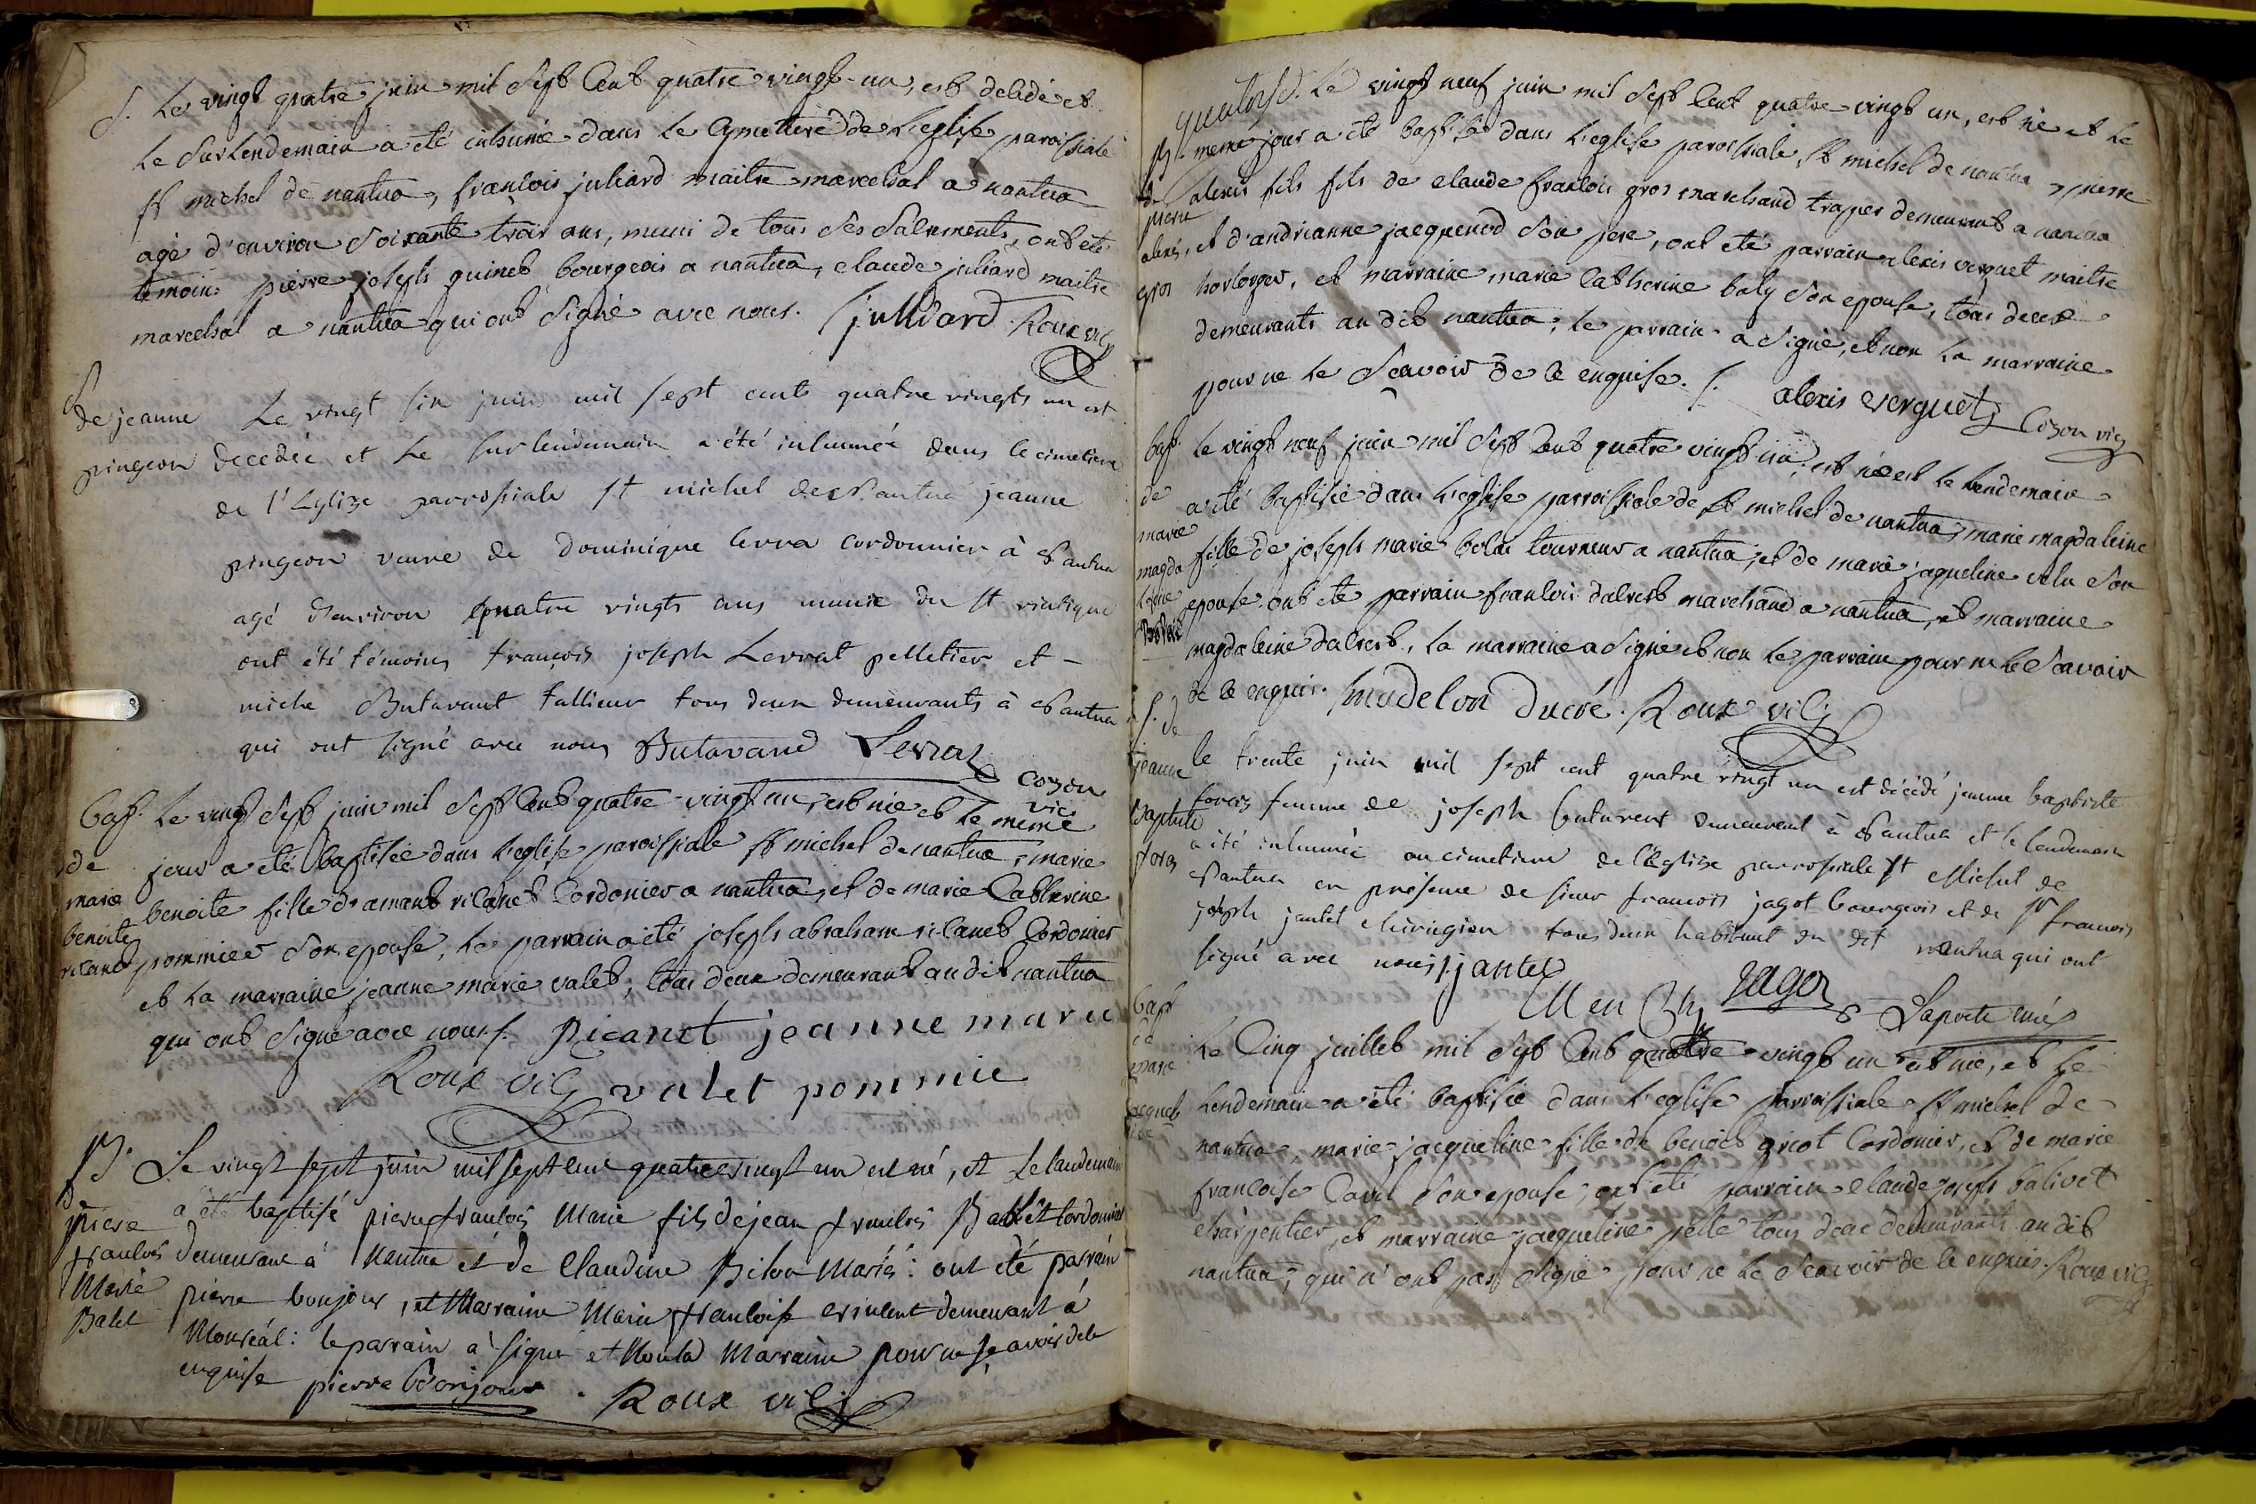 S. Le vingt quatre juin mil sept cent quatre vingt-un, est decedé et
le surlendemain a été inhumé dans le cymetiere de l'eglise paroissiale
St michel de nantua, francois juliard maitre marechal a nantua
agé d'environ soixante trois ans, muni de tous ses sacrements, ont été
temoins pierre joseph guinet bourgeois a nantua, claude juliard maitre
marechal a nantua qui ont signé avec nous. julliard Roux vic
S
de jeanne
pingeon
Le vingt six juin mil sept cents quatre vingts un est
decedée et le surlendemain a été inhumée dans le cimetiere
de l'Eglize parrossiale St michel de Nantua jeanne
pingeon veuve de Dominique Cerra cordonnier à Nantua
agé d'environ quatre vingts ans munie du St viatique
ont été témoins françois joseph Lerrat pelletier et
miche Butavant tallieur tous deux demeurants à Nantua
qui ont signé avec nous Butavand Lerrat
Cozon
vic
bap.
de
marie
benoite
ricanet
Le vingt sept juin mil sept cent quatre-vingt un, est née et le meme
jour a été baptisée dans l'eglise paroissiale St michel de nantua, marie
benoite fille d'amant ricanet cordonier a nantua, et de marie catherine
pommier son epouse, le parrain a été joseph abraham ricanet cordonier
et la marraine jeanne marie valet, tous deux demeurant au dit nantua
qui ont signé avec nous. Picanet jeanne marie
Roux vic valet pommie
B.
de
piere
francois
Marie
Balet
Le vingt sept juin mil sept cent quatre vingt un est né, et le landemain
a été baptisé pierre francois Marie fils de jean francois Ballet cordonnier
demeurant à Nantua et de Claudine Bilon Mariés: ont été parrain
pierre bonjour, et Marraine Marie francoise demeurant à
Monréal: le parrain a signé et Non la Marraine pour ne sçavoir de ce
enquise pierre Bonjour. Roux vic
B.
de
pierre
alexis
gros
Le vingt neuf juin mil sept cent quatre vingt un, est né et le
meme jour a été baptisé dans l'eglise paroissiale St michel de nantua pierre
alexis fils fils de claude francois gros marchand demeurant a nantua
et d'andrianne jacquenod son pere, ont été parrain alexis verguet maitre
horloger, et marraine marie catherine baly son epouse, tous deux
demeurants au dit nantua; le parrain a signé, et non la marraine
pour ne le sçavoir de ce enquise. alexis verguet Cozon vic
bap.
de
marie
magda
leine
le vingt neuf juin mil sept cent quatre vingt un; est née et le lendemain
a été baptisée dans l'eglise parroissiale de St michel de nantua, marie magdaleine
fille de joseph marie tourneur a nantua, et de marie jaqueline son
epouse ont été parrain francois dalcret marchand a nantua, et marraine
magdaleine dalcret, la marraine a signé et non le parrain pour ne le sçavoir
de ce enquis. madelon ducré. Roux vic
S. de
jeanne
baptiste
le trente juin mil sept cent quatre vingt un est décédé jeanne baptiste
femme de joseph demeurant à Nantua et le lendemain
a été inhumée au cimetiere de l'Eglize parrossiale St Michel de
Nantua en présence de sieur francois jagot bourgeois et de Sr francois
joseph jantet chirurgien tous deux habitant du dit nantua qui ont
signé avec nous jantet
jagot Laporte curé
bapt
de
marie
jacque
line
Le Cinq juillet mil sept cent quatre-vingt un est née, et le
lendemain a été baptisée dans l'eglise parroissiale St michel de
nantua, marie-jacqueline fille de benoit gricot cordonier, et de marie
francoise son epouse; ont été parrain claude joseph balivet
charpentier, et marraine jacqueline tous deux demeurants au dit
nantua; qui n'ont pas signé pour ne le sçavoir de ce enquis. Roux vic